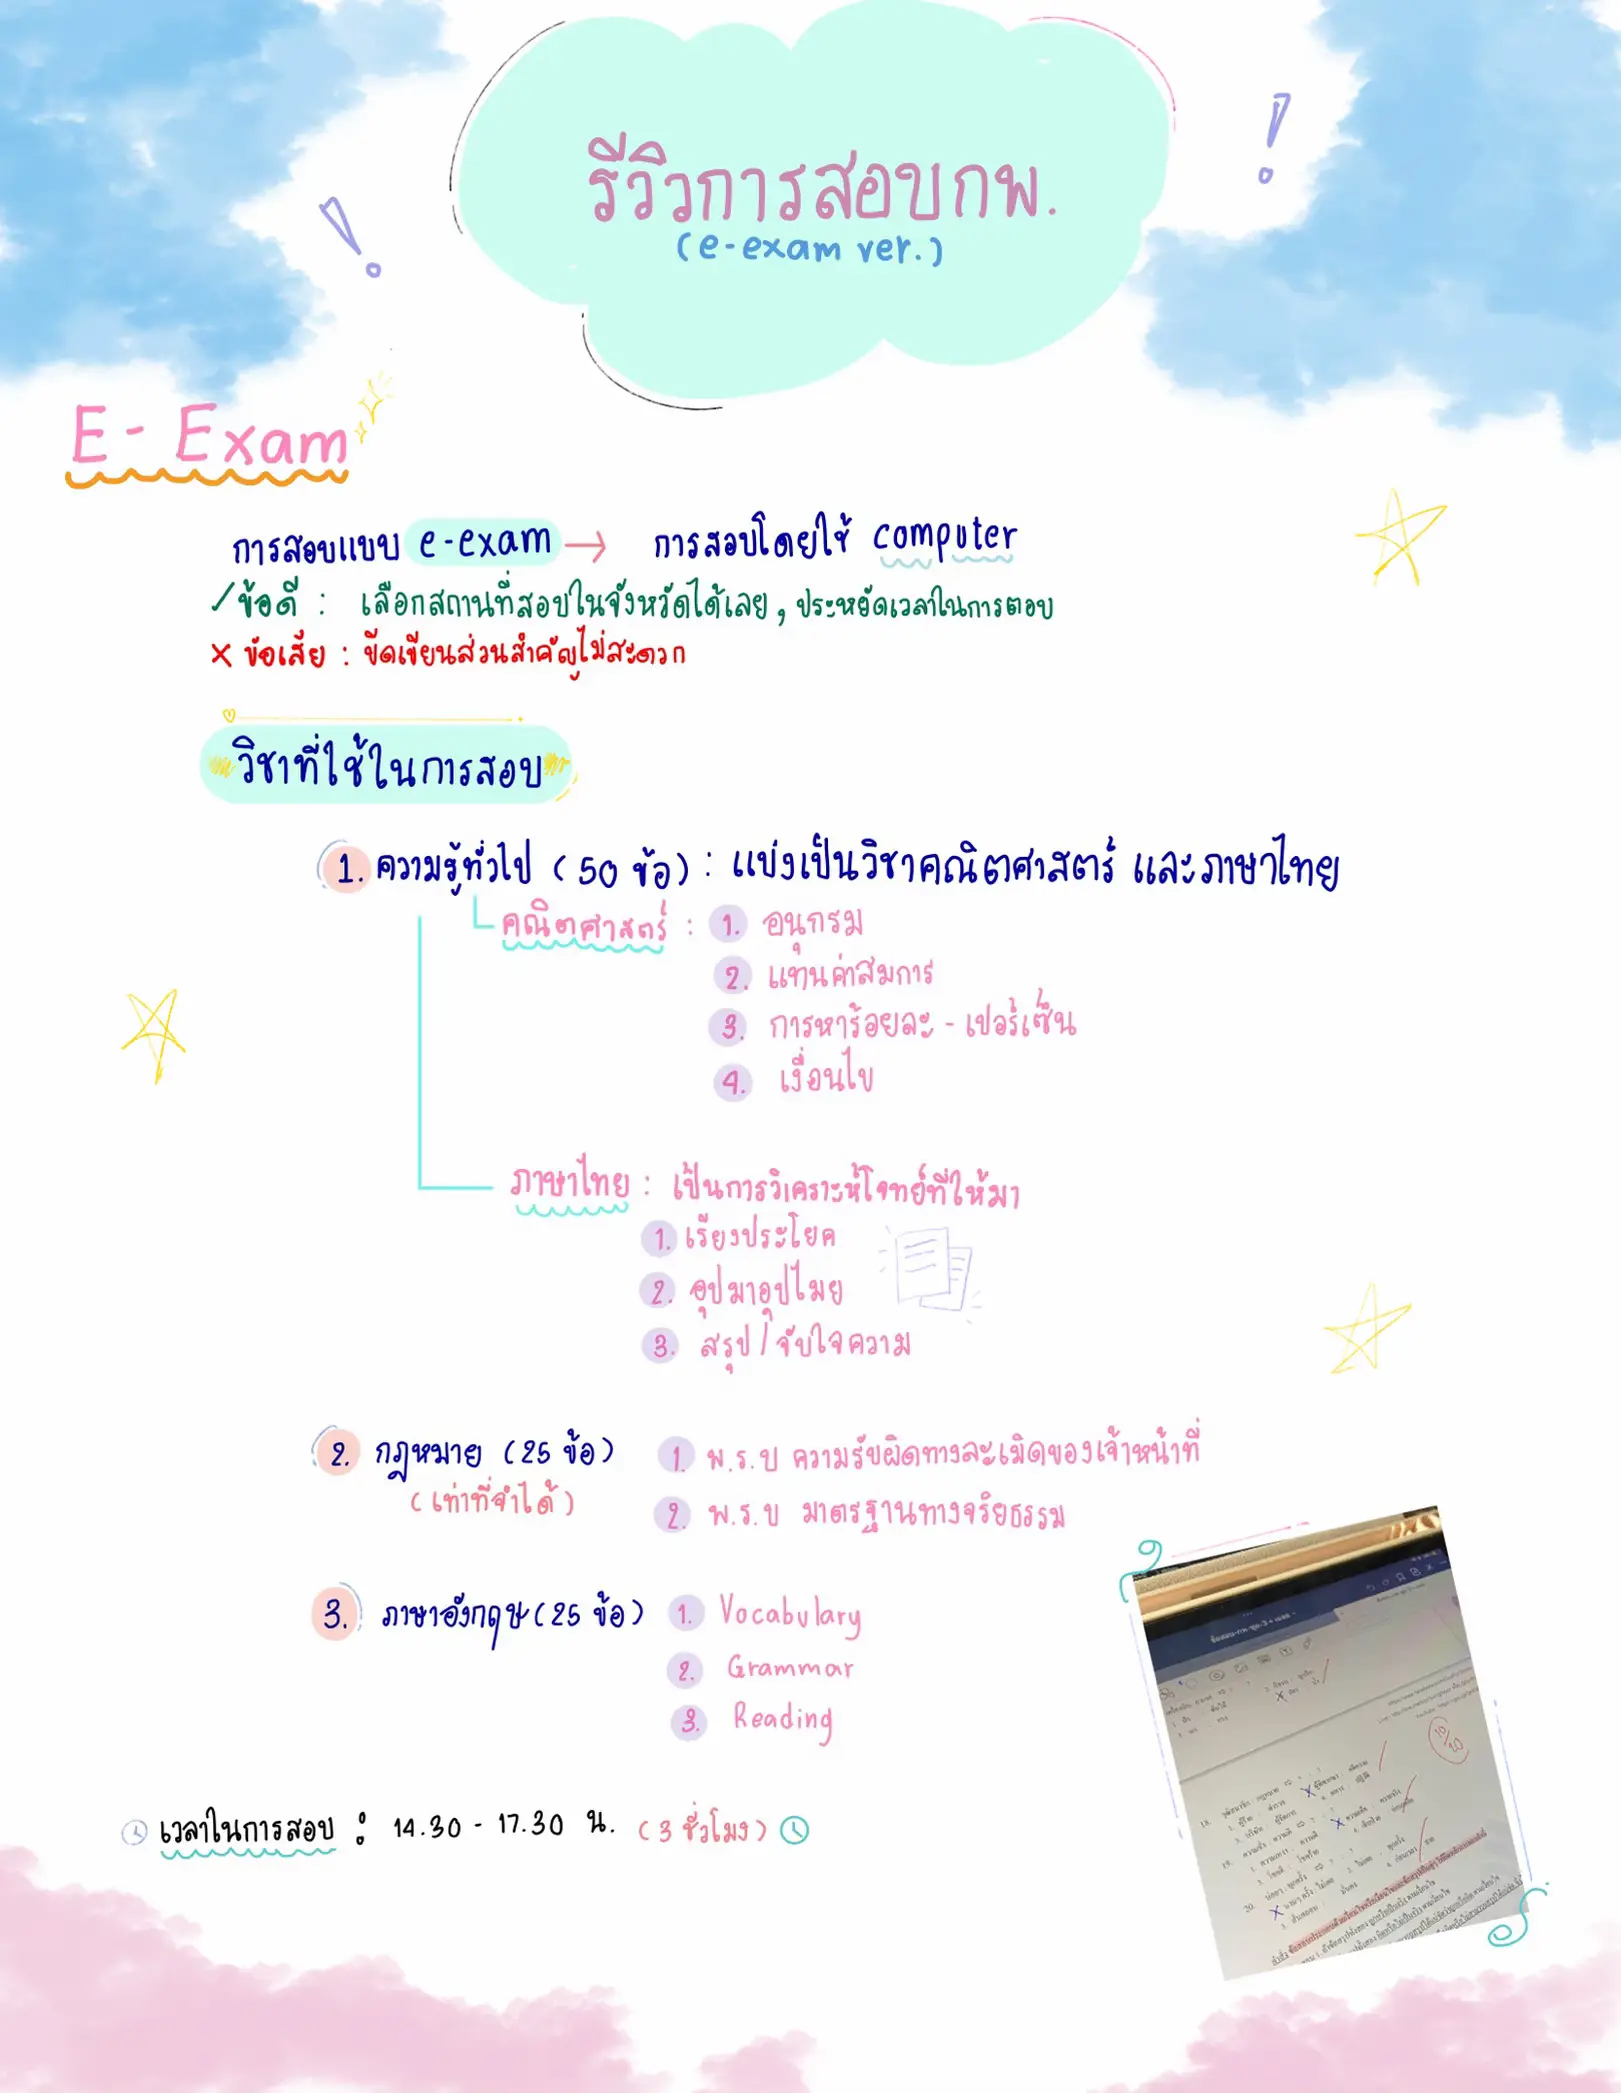 รีวิวการสอบกพ.
(e-exam ver.)
E - Exam
การสอบแบบ e-exam → การสอบโดยใช้ computer
✓ข้อดี : เลือกสถานที่สอบในจังหวัดได้เลย, ประหยัดเวลาในการตอบ
× ข้อเสีย : ขีดเขียนส่วนสำคัญไม่สะดวก
วิชาที่ใช้ในการสอบ
1. ความรู้ทั่วไป (50 ข้อ) : แบ่งเป็นวิชาคณิตศาสตร์ และภาษาไทย
คณิตศาสตร์ : 1. อนุกรม
2. แทนค่าสมการ
3. การหาร้อยละ - เปอร์เซ็น
4. เงื่อนไข
ภาษาไทย : เป็นการวิเคราะห์โจทย์ที่ให้มา
1. เรียงประโยค
2. อุปมาอุปไมย
3. สรุป/จับใจความ
2. กฎหมาย (25 ข้อ) 1. พ.ร.บ ความรับผิดทางละเมิดของเจ้าหน้าที่
(เท่าที่จำได้) 2. พ.ร.บ มาตรฐานทางจริยธรรม
3. ภาษาอังกฤษ (25 ข้อ) 1. Vocabulary
2. Grammar
3. Reading
เวลาในการสอบ : 14.30 - 17.30 น. (3 ชั่วโมง)
10/20
18.
19.
20.